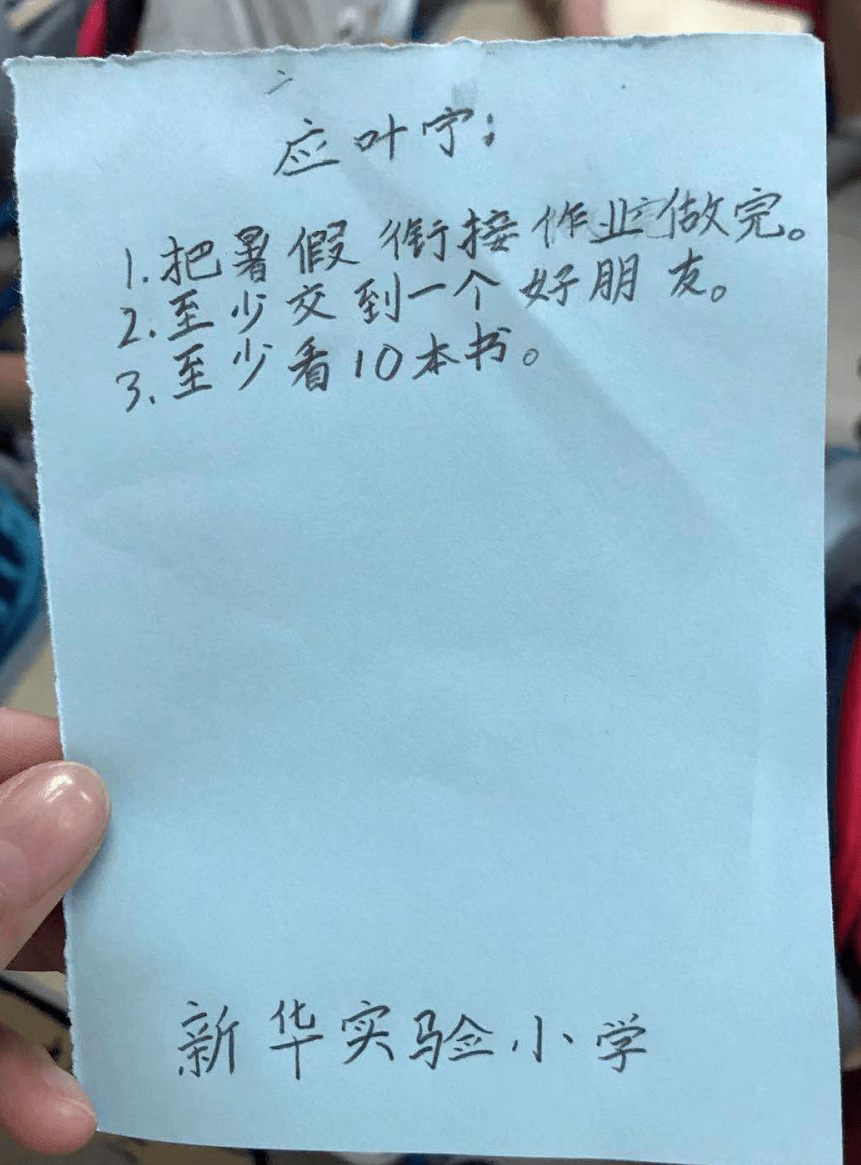 应叶宁：
1.把暑假衔接作业做完。
2.至少交到一个好朋友。
3.至少看10本书。
新华实验小学